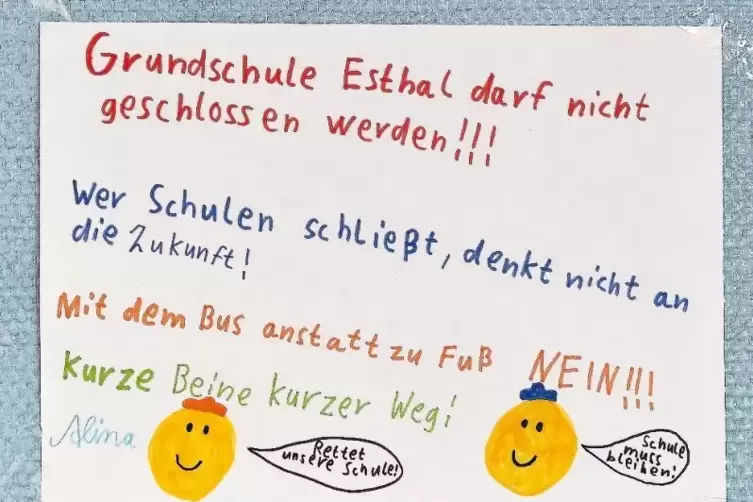 Grundschule Esthal darf nicht
geschlossen werden!!!
Wer Schulen schließt, denkt nicht an
die Zukunft!
Mit dem Bus anstatt zu Fuß NEIN!!!
Kurze Beine kurzer Weg!
Alina
Rettet
unsere Schule!
Schule
muss
bleiben!